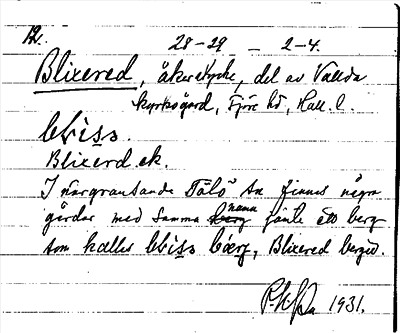 28-29 - 2-4.
Blixered, åkerstycke, del av Vallda
kyrkogård, Fjäre hd, Hall. l.
bliss.
Blixerd. ek.
I närgränsande "Tölö" sn finnes några
gårdar med samma namn jämte ett berg
som kallas bliss bærg, Blixered berget.
1931.